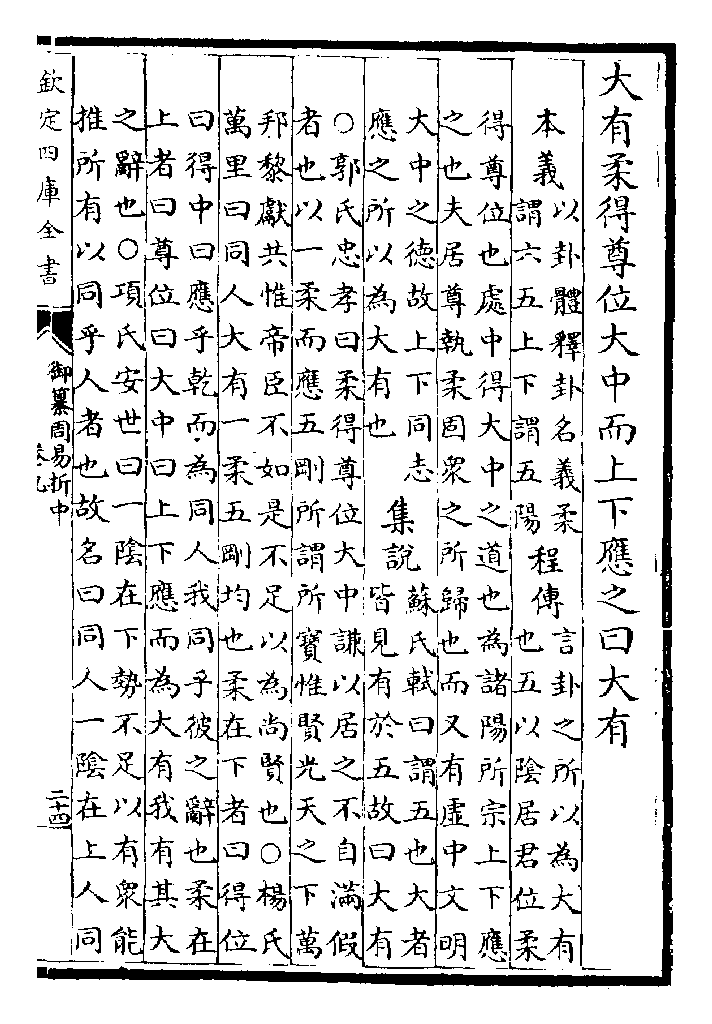 大有柔得尊位大中而上下應之曰大有
本義
以卦體釋卦名義柔
謂六五上下謂五陽
程傳
言卦之所以為大有
也五以陰居君位柔
得尊位也處中得大中之道也為諸陽所宗上下應
之也夫居尊執柔固衆之所歸也而又有虛中文明
大中之德故上下同志
應之所以為大有也
集說
蘇氏軾曰謂五也大者
皆見有於五故曰大有
○郭氏忠孝曰柔得尊位大中謙以居之不自滿假
者也以一柔而應五剛所謂所寶惟賢光天之下萬
邦黎獻共惟帝臣不如是不足以為尚賢也○楊氏
萬里曰同人大有一柔五剛均也柔在下者曰得位
曰得中曰應乎乾而為同人我同乎彼之辭也柔在
上者曰尊位曰大中曰上下應而為大有我有其大
之辭也○項氏安世曰一陰在下勢不足以有衆能
推所有以同乎人者也故名曰同人一陰在上人同
欽定四庫全書
御纂周易折中
卷九
二十四